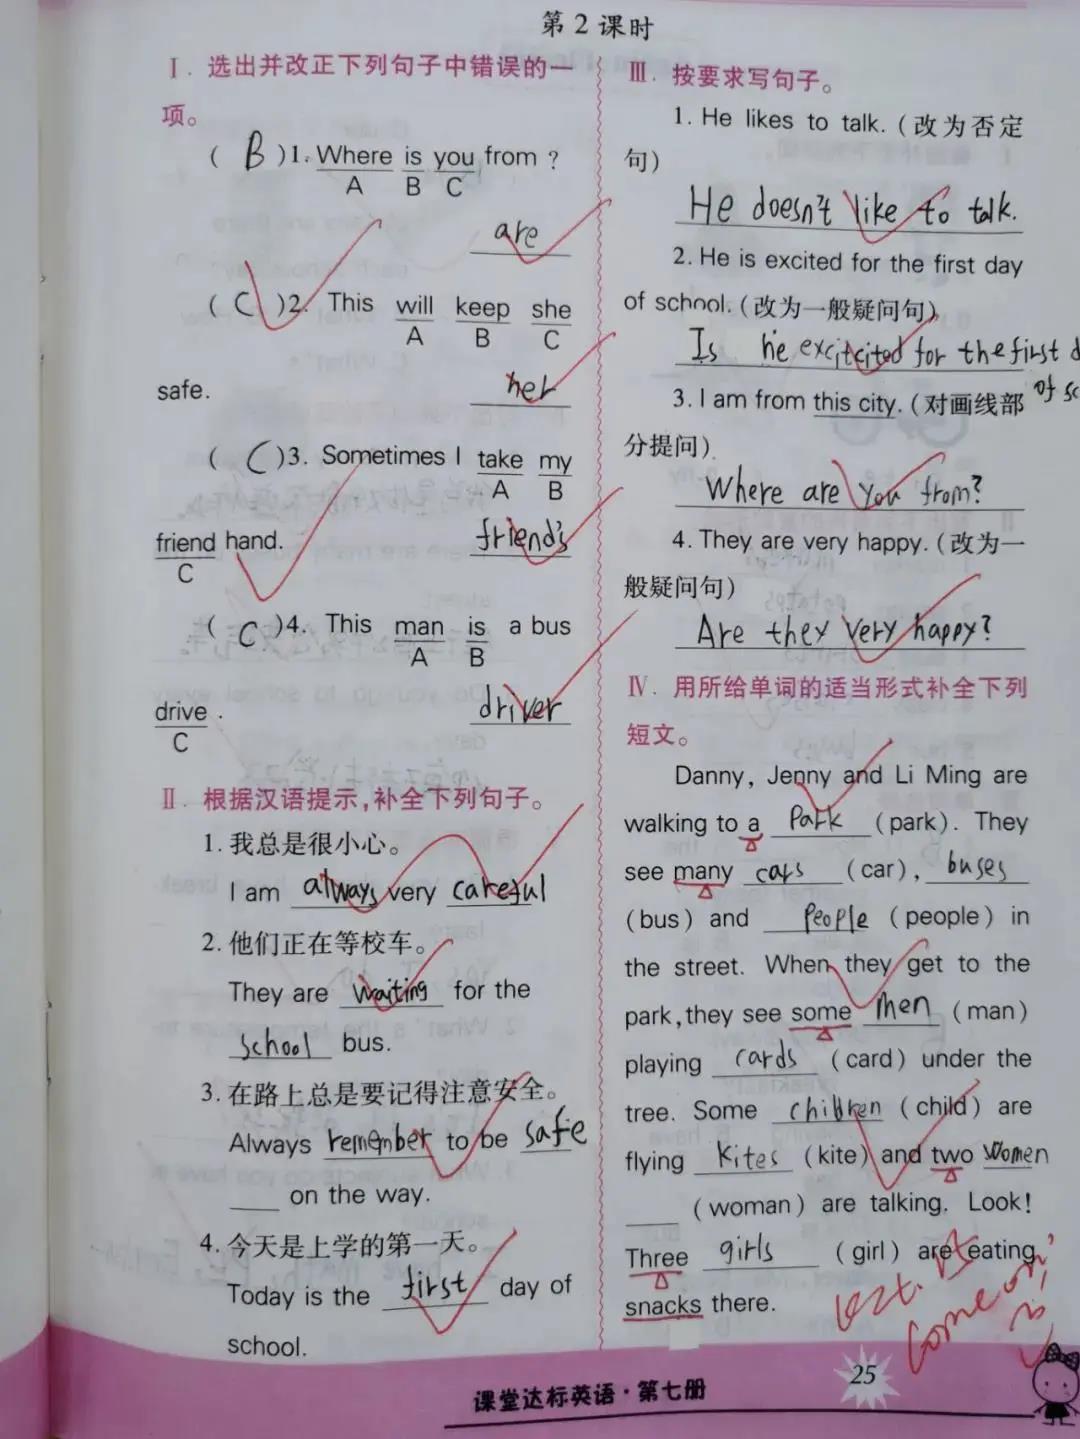 第2课时
Ⅰ. 选出并改正下列句子中错误的一
项。
( B )1. Where is you from ?
A B C
are
( C )2. This will keep she
A B C
safe. her
( C )3. Sometimes I take my
A B
friend hand. friend's
C
( C )4. This man is a bus
A B
drive . driver
C
Ⅱ. 根据汉语提示,补全下列句子。
1. 我总是很小心。
I am always very careful
2. 他们正在等校车。
They are waiting for the
school bus.
3. 在路上总是要记得注意安全。
Always remember to be safe
on the way.
4. 今天是上学的第一天。
Today is the first day of
school.
Ⅲ. 按要求写句子。
1. He likes to talk. (改为否定
句)
He doesn't like to talk.
2. He is excited for the first day
of school. (改为一般疑问句)
Is he excitcited for the first d
of sc
3. I am from this city. (对画线部
分提问)
Where are you from?
4. They are very happy. (改为一
般疑问句)
Are they very happy?
Ⅳ. 用所给单词的适当形式补全下列
短文。
Danny, Jenny and Li Ming are
walking to a park (park). They
see many cars (car), buses
(bus) and people (people) in
the street. When they get to the
park, they see some men (man)
playing cards (card) under the
tree. Some children (child) are
flying kites (kite) and two women
(woman) are talking. Look!
Three girls (girl) are eating
snacks there.
come on
25
课堂达标英语·第七册